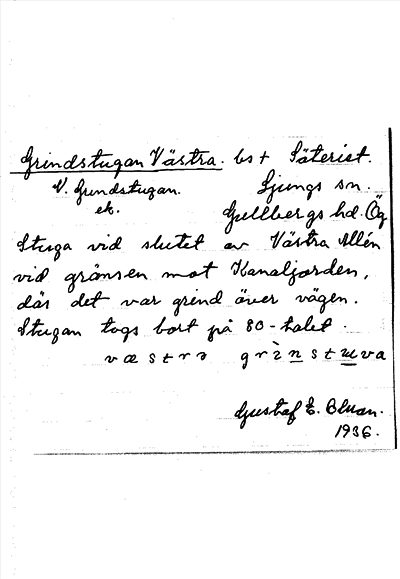 Grindstugan Västra. bs † Säteriet.
V. Grindstugan. Ljungs sn.
ek. Gullbergs hd. Ög
Stuga vid slutet av Västra Allén
vid gränsen mot Kanaljorden,
där det var grind över vägen.
Stugan togs bort på 80-talet.
væstrə grìnstuva
Gustaf E. Bluan.
1936.